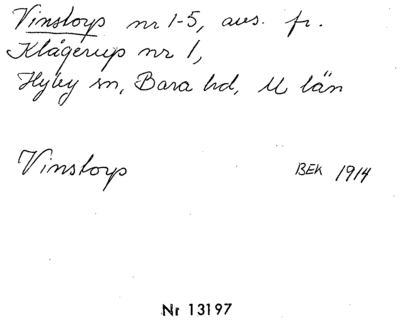 Vinstorp nr 1-5, avs. fr.
Klågerup nr 1,
Hyby sn, Bara hd, M län
Vinstorp BEK 1914
Nr 13197